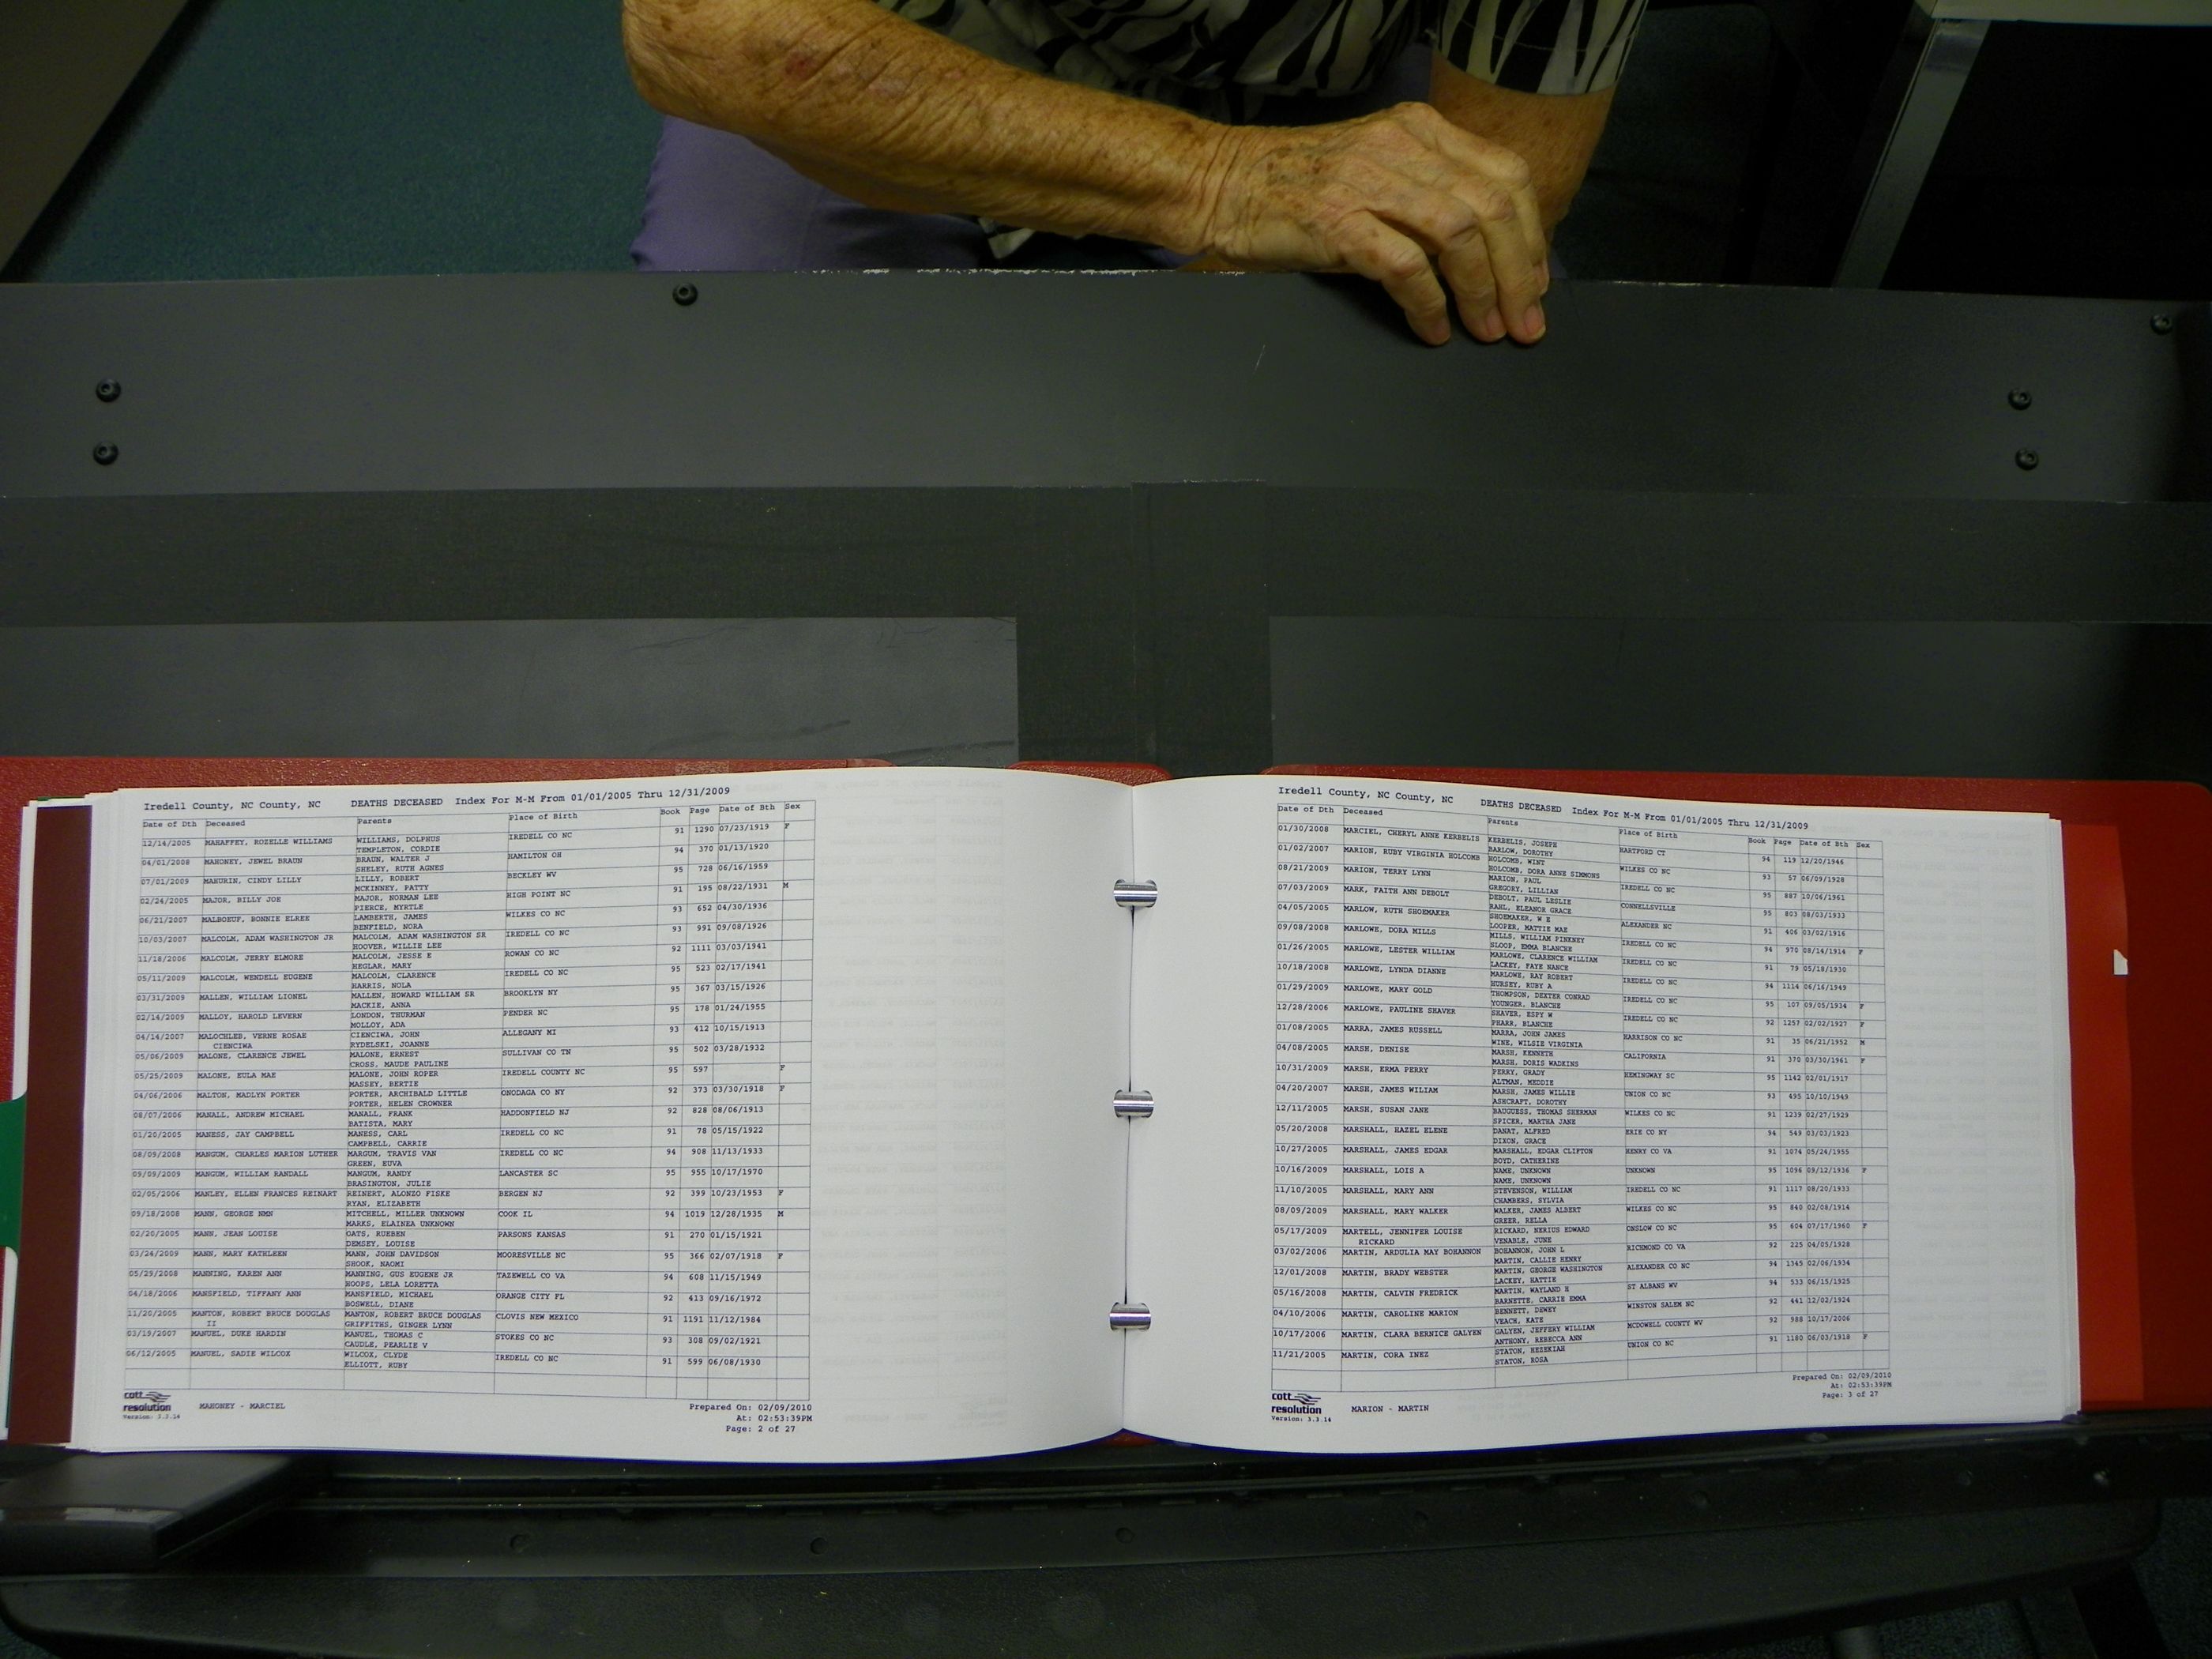 Iredell County, NC County, NC DEATHS DECEASED Index For M-M From 01/01/2005 Thru 12/31/2009
Date of Dth Deceased Parents Place of Birth Book Page Date of Bth Sex
12/14/2005 MAHAFFEY, ROZELLE WILLIAMS WILLIAMS, DOLPHUS IREDELL CO NC 91 1290 07/23/1919 F
TEMPLETON, CORDIE
04/01/2008 MAHONEY, JEWEL BRAUN BRAUN, WALTER J HAMILTON OH 94 370 01/13/1920
SHELEY, RUTH AGNES
07/01/2009 MAHURIN, CINDY LILLY LILLY, ROBERT BECKLEY WV 95 728 06/16/1959
MCKINNEY, PATTY
02/24/2005 MAJOR, BILLY JOE MAJOR, NORMAN LEE HIGH POINT NC 91 195 08/22/1931 M
PIERCE, MYRTLE
06/21/2007 MALBOEUF, BONNIE ELREE LAMBERTH, JAMES WILKES CO NC 93 652 04/30/1936
BENFIELD, NORA
10/03/2007 MALCOLM, ADAM WASHINGTON JR MALCOLM, ADAM WASHINGTON SR IREDELL CO NC 93 991 09/08/1926
HOOVER, WILLIE LEE
11/18/2006 MALCOLM, JERRY ELMORE MALCOLM, JESSE E ROWAN CO NC 92 1111 03/03/1941
HEGLAR, MARY
05/11/2009 MALCOLM, WENDELL EUGENE MALCOLM, CLARENCE IREDELL CO NC 95 523 02/17/1941
HARRIS, NOLA
03/31/2009 MALLEN, WILLIAM LIONEL MALLEN, HOWARD WILLIAM SR BROOKLYN NY 95 367 03/15/1926
MACKIE, ANNA
02/14/2009 MALLOY, HAROLD LEVERN LONDON, THURMAN PENDER NC 95 178 01/24/1955
MOLLOY, ADA
04/14/2007 MALOCHLEB, VERNE ROSAE CIENCIWA, JOHN ALLEGANY MI 93 412 10/15/1913
CIENCIWA RYDELSKI, JOANNE
05/06/2009 MALONE, CLARENCE JEWEL MALONE, ERNEST SULLIVAN CO TN 95 502 03/28/1932
CROSS, MAUDE PAULINE
05/25/2009 MALONE, EULA MAE MALONE, JOHN ROPER IREDELL COUNTY NC 95 597 F
MASSEY, BERTIE
04/06/2006 MALTON, MADLYN PORTER PORTER, ARCHIBALD LITTLE ONODAGA CO NY 92 373 03/30/1918 F
PORTER, HELEN CROWNER
08/07/2006 MANALL, ANDREW MICHAEL MANALL, FRANK HADDONFIELD NJ 92 828 08/06/1913
BATISTA, MARY
01/20/2005 MANESS, JAY CAMPBELL MANESS, CARL IREDELL CO NC 91 78 05/15/1922
CAMPBELL, CARRIE
08/09/2008 MANGUM, CHARLES MARION LUTHER MARGUM, TRAVIS VAN IREDELL CO NC 94 908 11/13/1933
GREEN, EUVA
09/09/2009 MANGUM, WILLIAM RANDALL MANGUM, RANDY LANCASTER SC 95 955 10/17/1970
BRASINGTON, JULIE
02/05/2006 MANLEY, ELLEN FRANCES REINART REINERT, ALONZO FISKE BERGEN NJ 92 399 10/23/1953 F
RYAN, ELIZABETH
09/18/2008 MANN, GEORGE NMN MITCHELL, MILLER UNKNOWN COOK IL 94 1019 12/28/1935 M
MARKS, ELAINEA UNKNOWN
02/20/2005 MANN, JEAN LOUISE OATS, RUEBEN PARSONS KANSAS 91 270 01/15/1921
DEMSEY, LOUISE
03/24/2009 MANN, MARY KATHLEEN MANN, JOHN DAVIDSON MOORESVILLE NC 95 366 02/07/1918 F
SHOOK, NAOMI
05/29/2008 MANNING, KAREN ANN MANNING, GUS EUGENE JR TAZEWELL CO VA 94 608 11/15/1949
HOOPS, LELA LORETTA
04/18/2006 MANSFIELD, TIFFANY ANN MANSFIELD, MICHAEL ORANGE CITY FL 92 413 09/16/1972
BOSWELL, DIANE
11/20/2005 MANTON, ROBERT BRUCE DOUGLAS MANTON, ROBERT BRUCE DOUGLAS CLOVIS NEW MEXICO 91 1191 11/12/1984
II GRIFFITHS, GINGER LYNN
03/19/2007 MANUEL, DUKE HARDIN MANUEL, THOMAS C STOKES CO NC 93 308 09/02/1921
CAUDLE, PEARLIE V
06/12/2005 MANUEL, SADIE WILCOX WILCOX, CLYDE IREDELL CO NC 91 599 06/08/1930
ELLIOTT, RUBY
cott
resolution
Version: 3.3.14
MAHONEY - MARCIEL
Prepared On: 02/09/2010
At: 02:53:39PM
Page: 2 of 27
Iredell County, NC County, NC DEATHS DECEASED Index For M-M From 01/01/2005 Thru 12/31/2009
Date of Dth Deceased Parents Place of Birth Book Page Date of Bth Sex
01/30/2008 MARCIEL, CHERYL ANNE KERBELIS KERBELIS, JOSEPH HARTFORD CT 94 119 12/20/1946
BARLOW, DOROTHY
01/02/2007 MARION, RUBY VIRGINIA HOLCOMB HOLCOMB, WINT WILKES CO NC 93 57 06/09/1928
HOLCOMB, DORA ANNE SIMMONS
08/21/2009 MARION, TERRY LYNN MARION, PAUL IREDELL CO NC 95 887 10/06/1961
GREGORY, LILLIAN
07/03/2009 MARK, FAITH ANN DEBOLT DEBOLT, PAUL LESLIE CONNELLSVILLE 95 803 08/03/1933
RAHL, ELEANOR GRACE
04/05/2005 MARLOW, RUTH SHOEMAKER SHOEMAKER, W E ALEXANDER NC 91 406 03/02/1916
LOOPER, MATTIE MAE
09/08/2008 MARLOWE, DORA MILLS MILLS, WILLIAM PINKNEY IREDELL CO NC 94 970 08/14/1914 F
SLOOP, EMMA BLANCHE
01/26/2005 MARLOWE, LESTER WILLIAM MARLOWE, CLARENCE WILLIAM IREDELL CO NC 91 79 05/18/1930
LACKEY, FAYE NANCE
10/18/2008 MARLOWE, LYNDA DIANNE MARLOWE, RAY ROBERT IREDELL CO NC 94 1114 06/16/1949
HURSEY, RUBY A
01/29/2009 MARLOWE, MARY GOLD THOMPSON, DEXTER CONRAD IREDELL CO NC 95 107 09/05/1934 F
YOUNGER, BLANCHE
12/28/2006 MARLOWE, PAULINE SHAVER SHAVER, ESPY W IREDELL CO NC 92 1257 02/02/1927 F
PHARR, BLANCHE
01/08/2005 MARRA, JAMES RUSSELL MARRA, JOHN JAMES HARRISON CO NC 91 35 06/21/1952 M
WINE, WILSIE VIRGINIA
04/08/2005 MARSH, DENISE MARSH, KENNETH CALIFORNIA 91 370 03/30/1961 F
MARSH, DORIS WADKINS
10/31/2009 MARSH, ERMA PERRY PERRY, GRADY HEMINGWAY SC 95 1142 02/01/1917
ALTMAN, MEDDIE
04/20/2007 MARSH, JAMES WILIAM MARSH, JAMES WILLIE UNION CO NC 93 495 10/10/1949
ASHCRAFT, DOROTHY
12/11/2005 MARSH, SUSAN JANE BAUGUESS, THOMAS SHERMAN WILKES CO NC 91 1239 02/27/1929
SPICER, MARTHA JANE
05/20/2008 MARSHALL, HAZEL ELENE DANAT, ALFRED ERIE CO NY 94 549 03/03/1923
DIXON, GRACE
10/27/2005 MARSHALL, JAMES EDGAR MARSHALL, EDGAR CLIFTON HENRY CO VA 91 1074 05/24/1955
BOYD, CATHERINE
10/16/2009 MARSHALL, LOIS A NAME, UNKNOWN UNKNOWN 95 1096 09/12/1936 F
NAME, UNKNOWN
11/10/2005 MARSHALL, MARY ANN STEVENSON, WILLIAM IREDELL CO NC 91 1117 08/20/1933
CHAMBERS, SYLVIA
08/09/2009 MARSHALL, MARY WALKER WALKER, JAMES ALBERT WILKES CO NC 95 840 02/08/1914
GREER, RELLA
05/17/2009 MARTELL, JENNIFER LOUISE RICKARD, NERIUS EDWARD ONSLOW CO NC 95 604 07/17/1960 F
RICKARD VENABLE, JUNE
03/02/2006 MARTIN, ARDULIA MAY BOHANNON BOHANNON, JOHN L RICHMOND CO VA 92 225 04/05/1928
MARTIN, CALLIE HENRY
12/01/2008 MARTIN, BRADY WEBSTER MARTIN, GEORGE WASHINGTON ALEXANDER CO NC 94 1345 02/06/1934
LACKEY, HATTIE
05/16/2008 MARTIN, CALVIN FREDRICK MARTIN, WAYLAND H ST ALBANS WV 94 533 06/15/1925
BARNETTE, CARRIE EMMA
04/10/2006 MARTIN, CAROLINE MARION BENNETT, DEWEY WINSTON SALEM NC 92 441 12/02/1924
VEACH, KATE
10/17/2006 MARTIN, CLARA BERNICE GALYEN GALYEN, JEFFERY WILLIAM MCDOWELL COUNTY WV 92 988 10/17/2006
ANTHONY, REBECCA ANN
11/21/2005 MARTIN, CORA INEZ STATON, HEZEKIAH UNION CO NC 91 1180 06/03/1918 F
STATON, ROSA
cott
resolution
Version: 3.3.14
MARION - MARTIN
Prepared On: 02/09/2010
At: 02:53:39PM
Page: 3 of 27